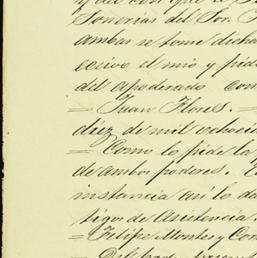 y del con que el
Tonerias del Sor.
ambas se tome dicha
ceivo el mio y pide
del apoderado com
= Juan Flores. =
diez de mil ochocie
= Como lo pide la
de ambos poderes. E
instancia asi lo da
tigos de asistencia
= Felipe Montes y Cor